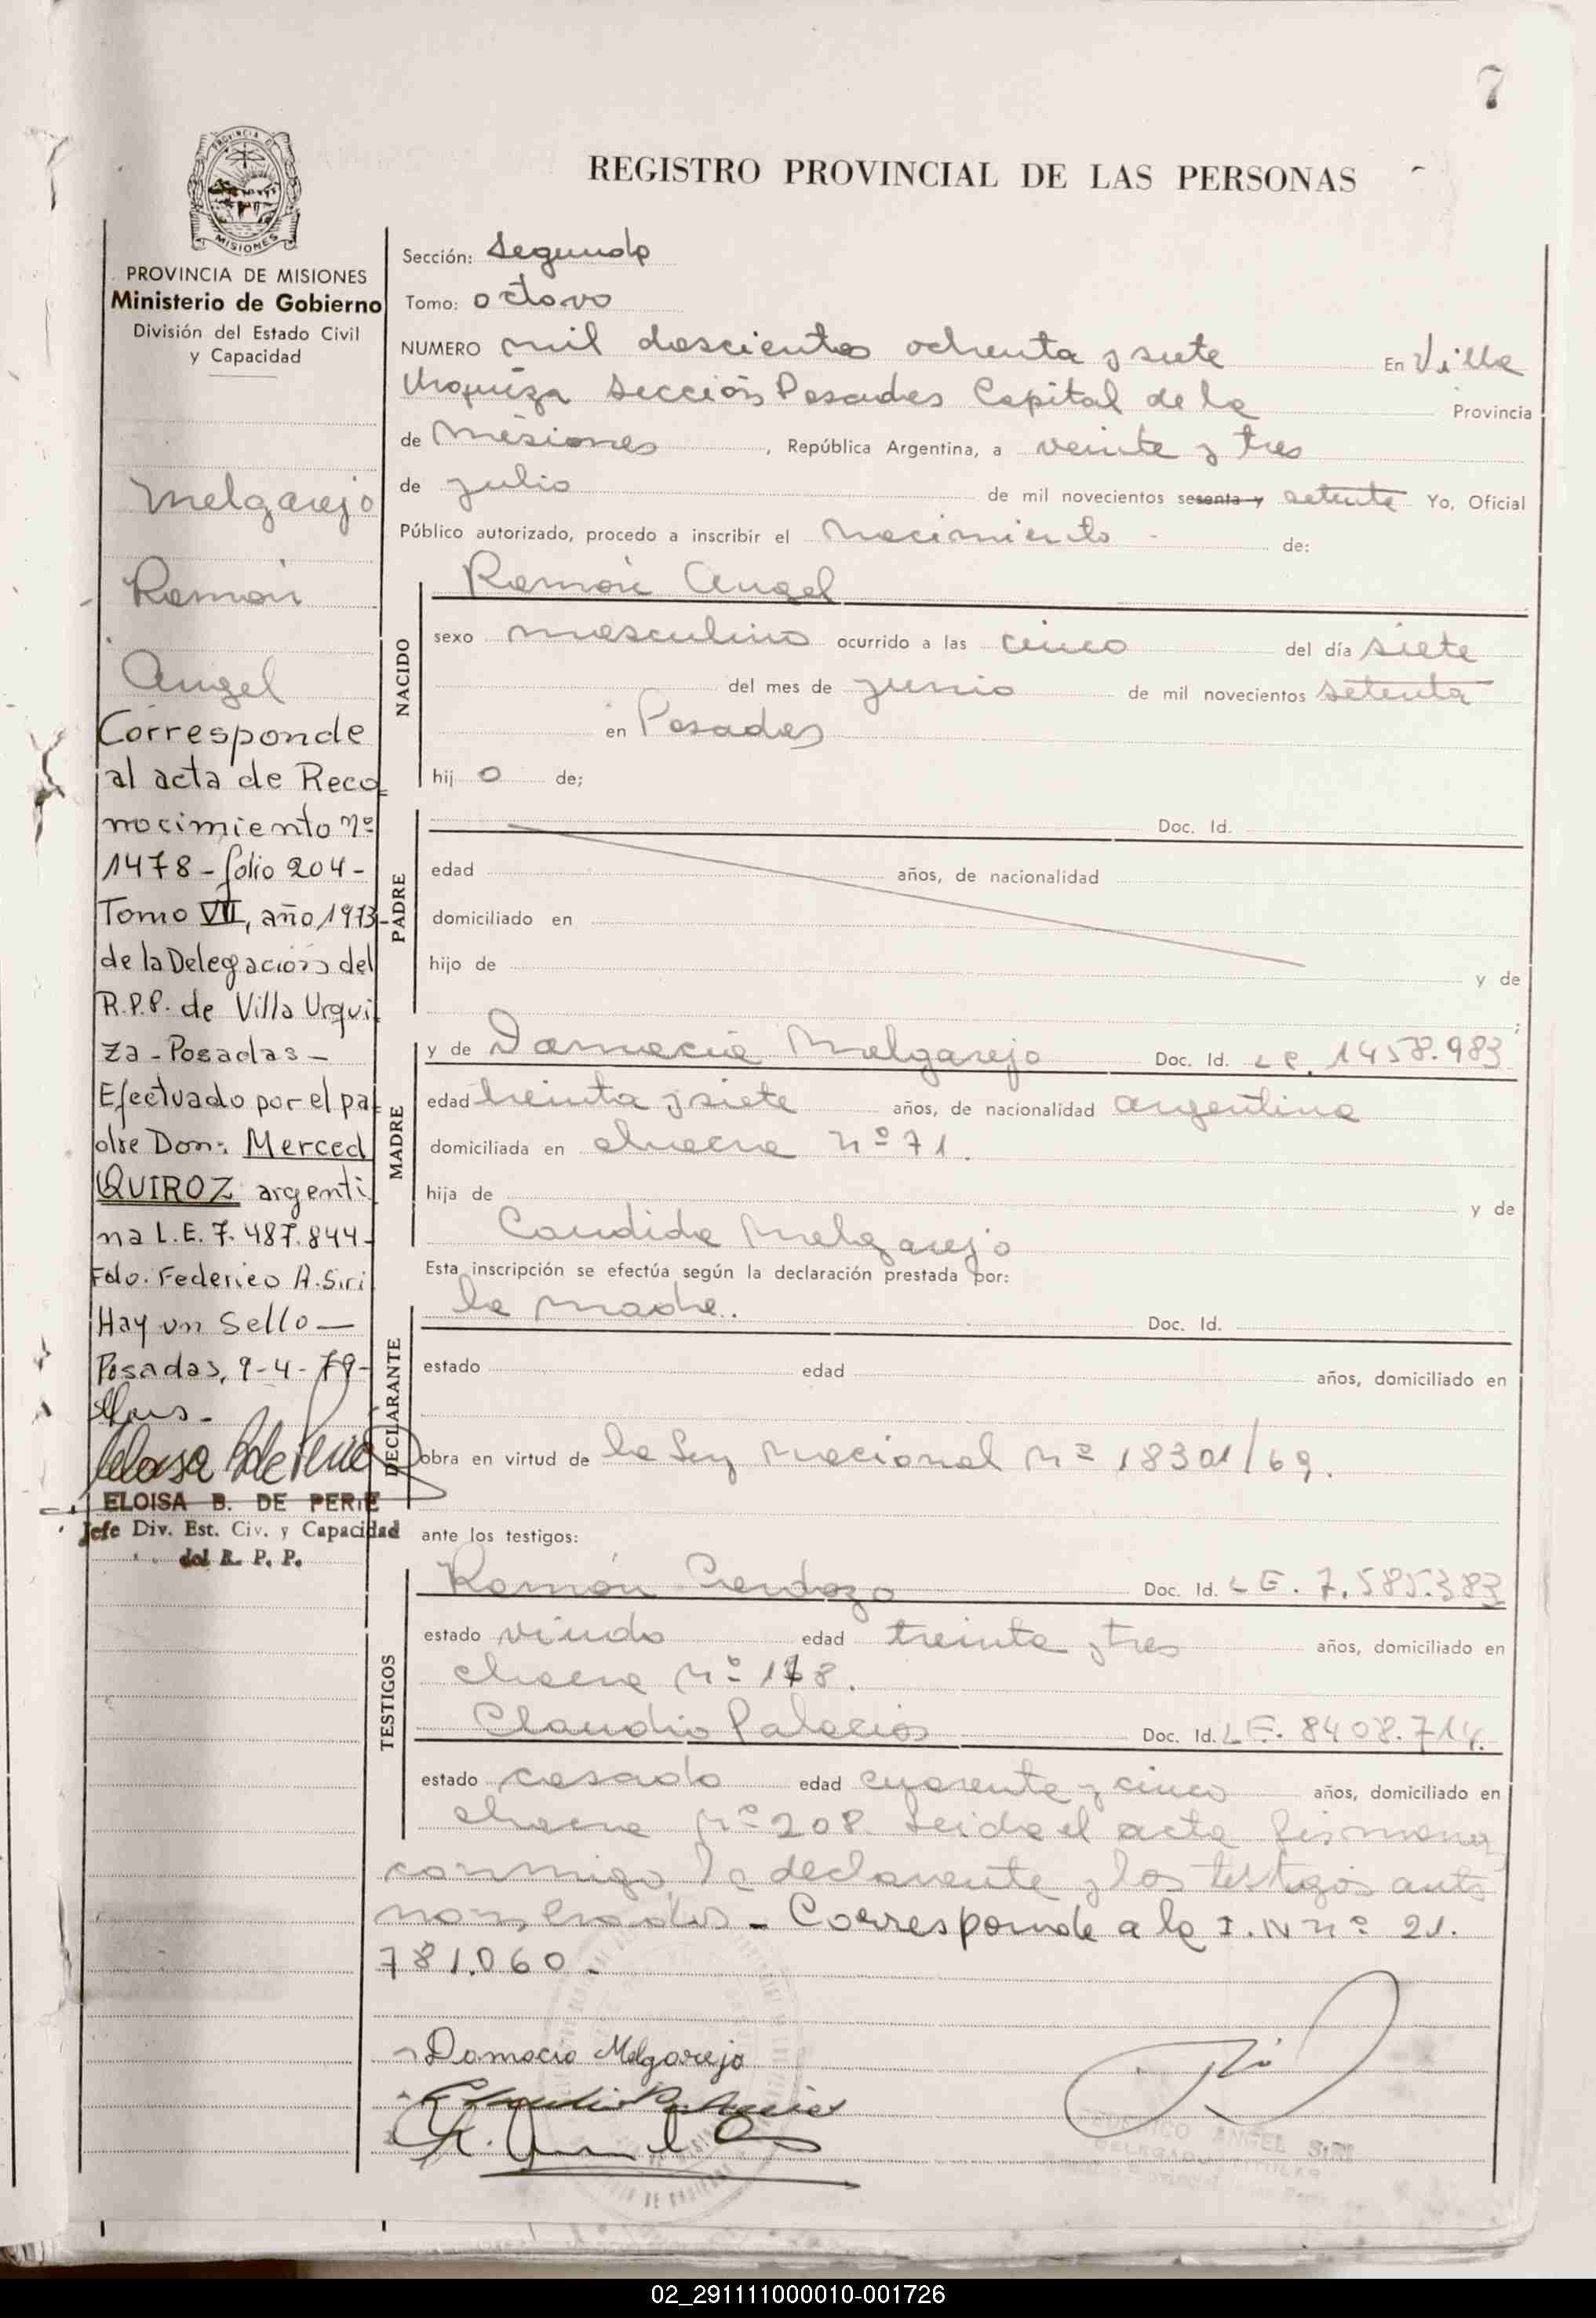 7
REGISTRO PROVINCIAL DE LAS PERSONAS
PROVINCIA DE
MISIONES
PROVINCIA DE MISIONES
Ministerio de Gobierno
División del Estado Civil
y Capacidad
Melgarejo
Ramón
Angel
Corresponde
al acta de Reco
nocimiento nº
1478 - folio 204 -
Tomo VII, año 1973-
de la Delegación del
R.P.P. de Villa Urqui
za - Posadas -
Efectuado por el pa
dre Don: Merced
QUIROZ argenti
na L.E. 7.487.844-
Fdo. Federico A. Siri
Hay un Sello -
Posadas, 9-4-79-
ELOISA B. DE PERIE
Jefe Div. Est. Civ. y Capacidad
del R. P. P.
Sección: Segunda
Tomo: octavo
NUMERO mil doscientos ochenta y siete En Villa
Urquiza Sección Posadas Capital de la Provincia
de Misiones, República Argentina, a veinte y tres
de julio de mil novecientos sesenta y setenta Yo, Oficial
Público autorizado, procedo a inscribir el nacimiento - de:
NACIDO
Ramón Angel
sexo masculino ocurrido a las cinco del día siete
del mes de junio de mil novecientos setenta
en Posadas
hij o de;
PADRE
Doc. Id.
edad años, de nacionalidad
domiciliado en
hijo de y de
MADRE
y de Damacia Melgarejo Doc. Id. LC. 1458.983
edad treinta y siete años, de nacionalidad argentina
domiciliada en chacra nº 71.
hija de y de
Candida Melgarejo
Esta inscripción se efectúa según la declaración prestada por:
DECLARANTE
la madre. Doc. Id.
estado edad años, domiciliado en
obra en virtud de la Ley Nacional Nº 18301/69.
ante los testigos:
TESTIGOS
Ramón Cardozo Doc. Id. LE. 7.585.383
estado viudo edad treinta y tres años, domiciliado en
chacra Nº 118.
Claudio Palacios Doc. Id. LE. 8408.714.
estado casado edad cuarenta y cinco años, domiciliado en
chacra Nº 208. Leida el acta firman
conmigo, la declarante y los testigos ante
nombrados - Corresponde a la I.N nº 21.
781.060.
Damacia Melgarejo
Claudio Palacios
ANGEL SIRI
02_291111000010-001726